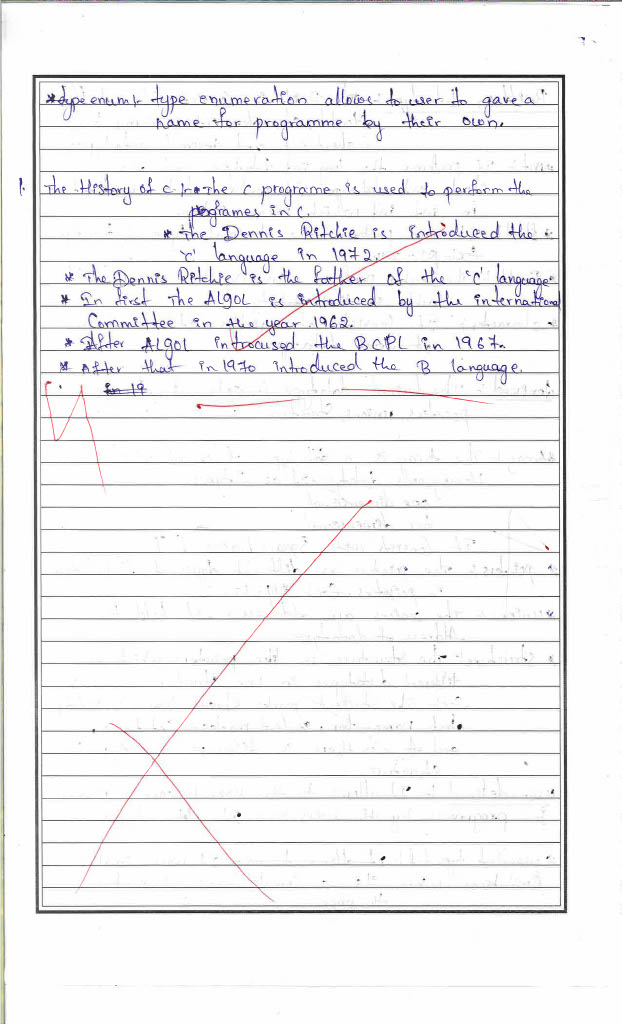 * type enum :- type enumeration allows to user to gave a
name for programme by their own.
1. The History of c :- * The c programe is used to perform the
programes in c.
* The Dennis Ritchie is introduced the
'c' language in 1972.
* The Dennis Ritchie is the father of the 'c' language
* In first The ALGOL is introduced by the international
Committee in the year 1962.
* After ALGOL introcused the BCPL in 1967.
* After that in 1970 introduced the B language.
in 19